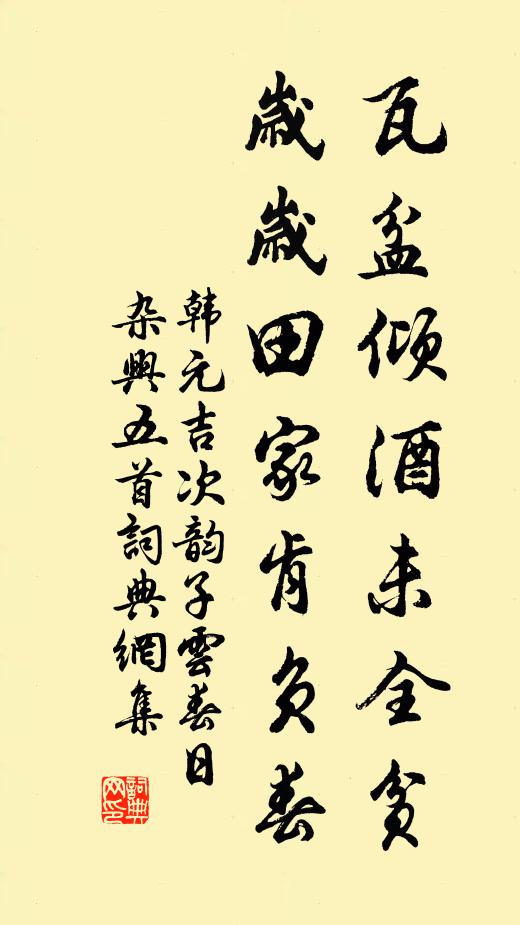 瓦盆倾酒未全贫
歲歲田家肯负春
韩元吉次韵子雲春日
杂興五首詞典網集
詞典
网印